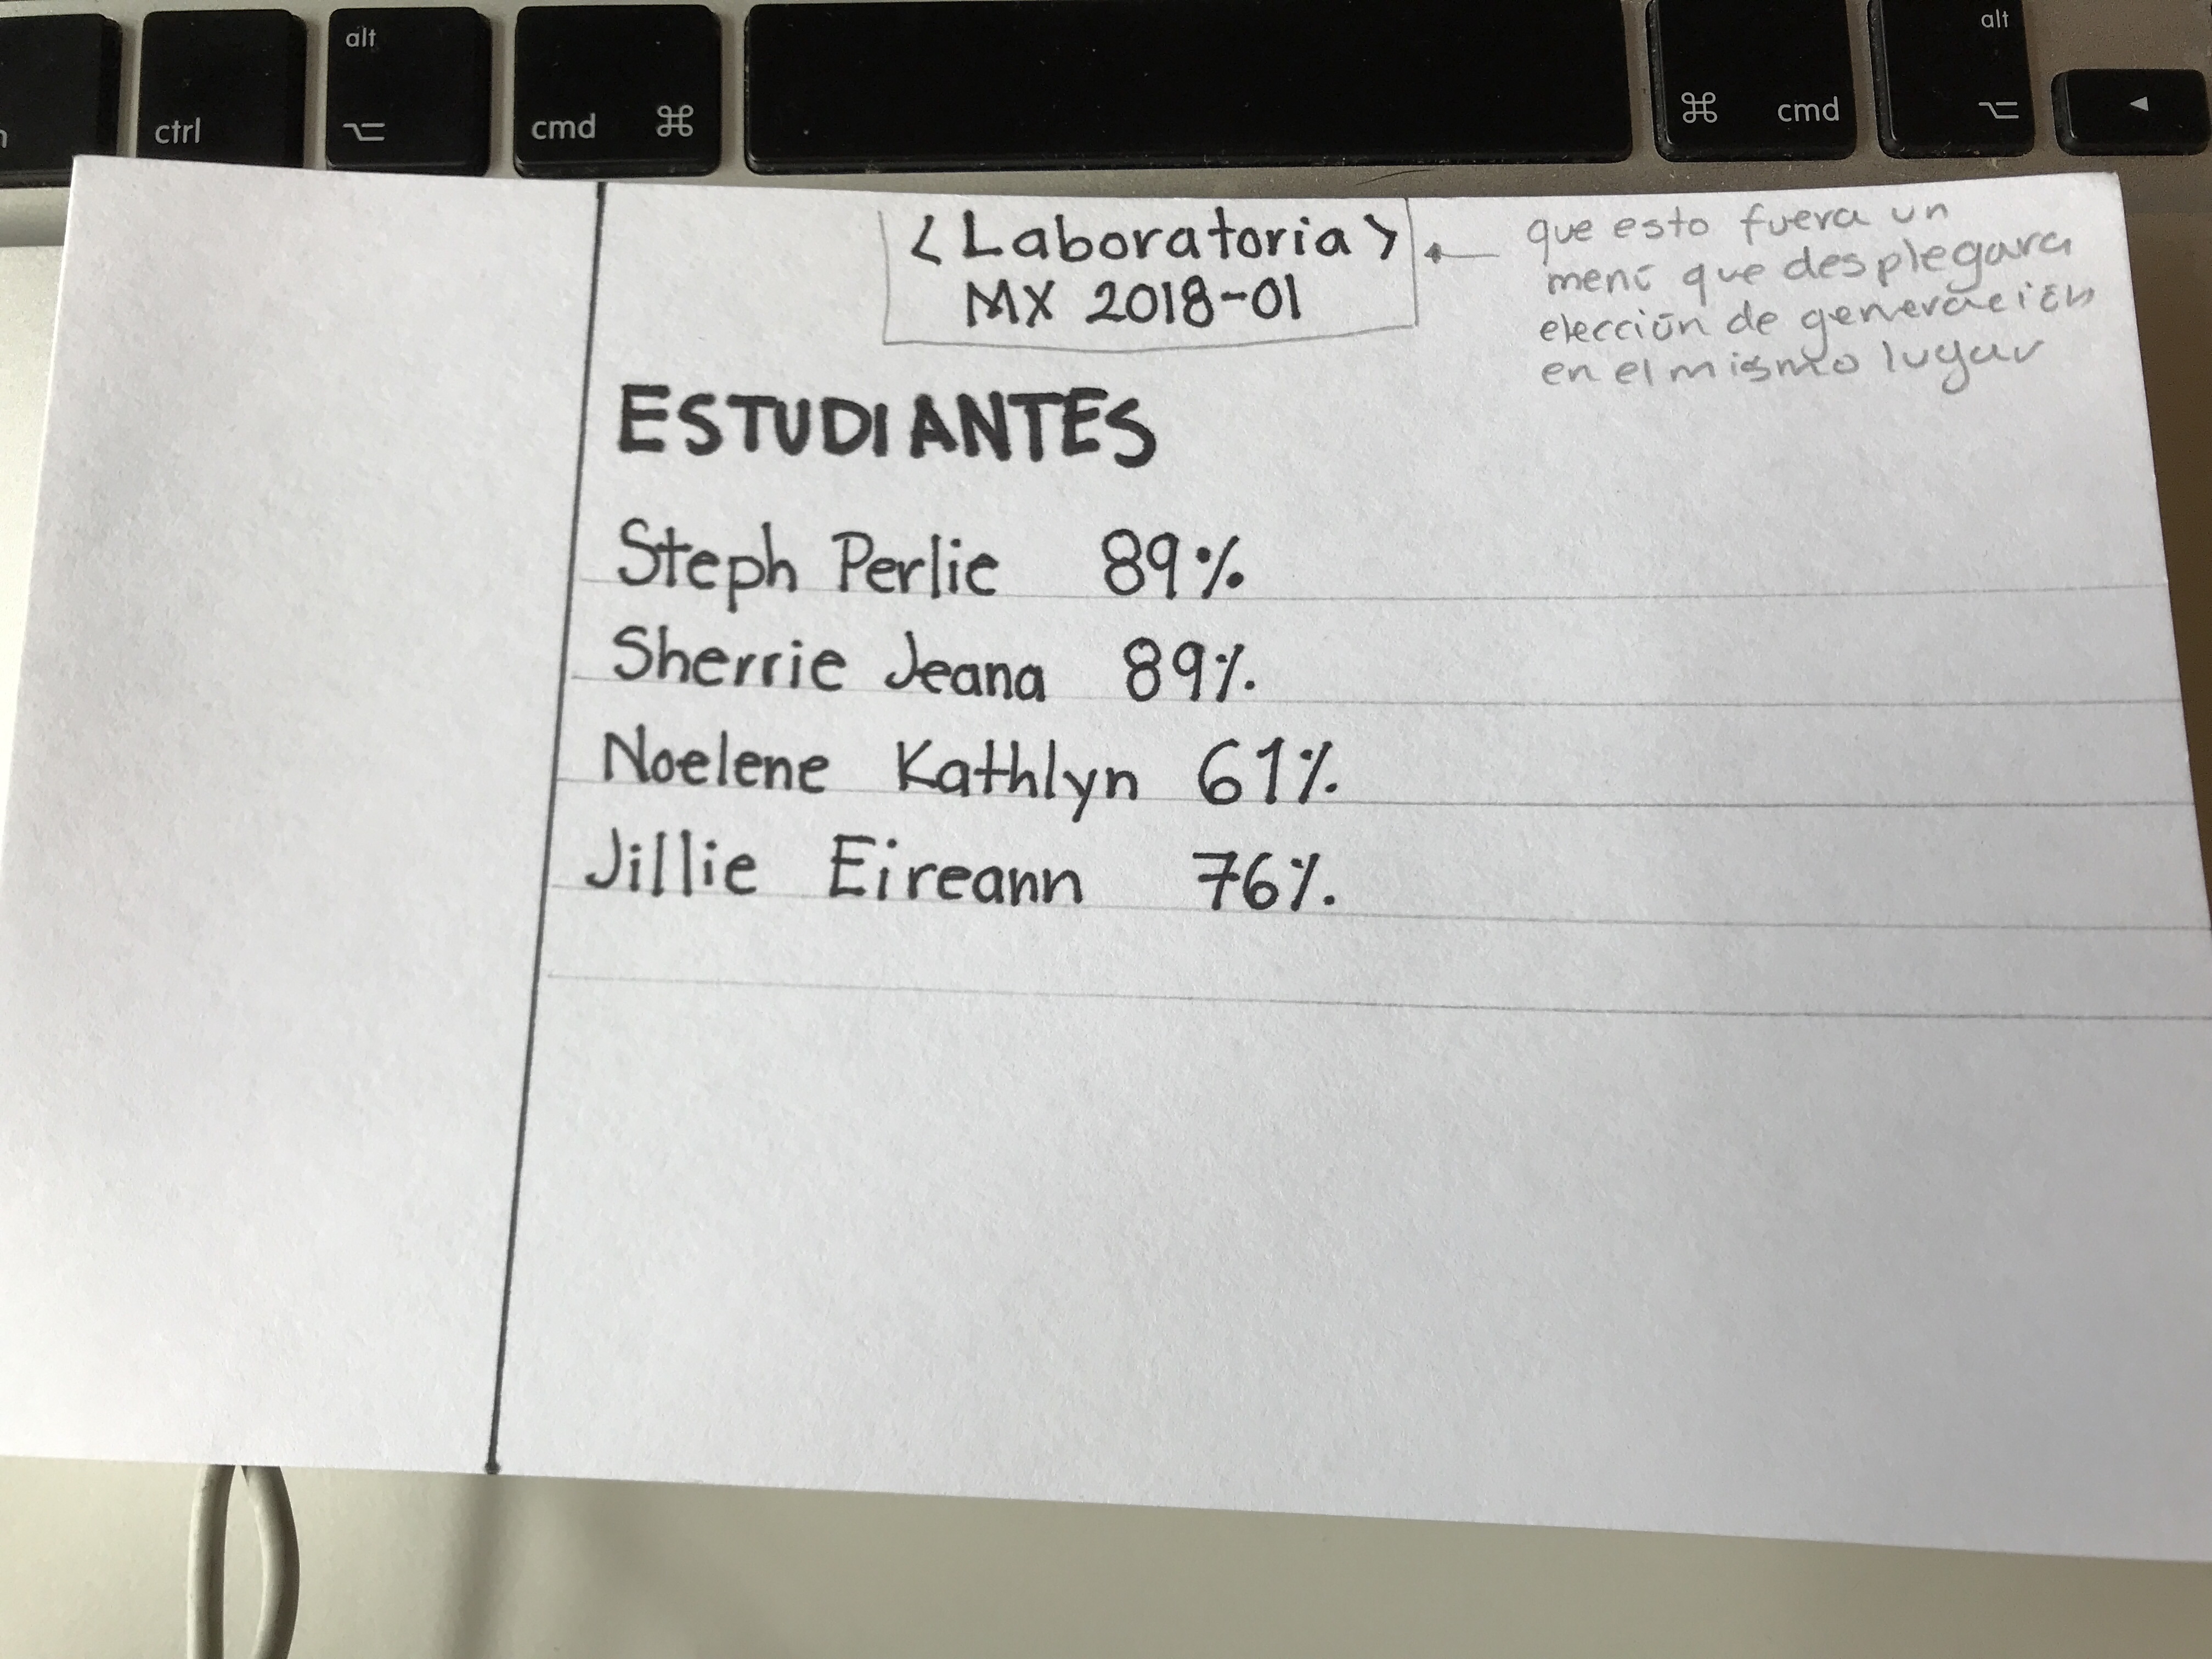 alt
ctrl
cmd ⌘
⌘ cmd
alt
<Laboratoria>
MX 2018-01
que esto fuera un
menú que desplegara
elección de generación
en el mismo lugar
ESTUDIANTES
Steph Perlie 89%
Sherrie Jeana 89%
Noelene Kathlyn 61%
Jillie Eireann 76%